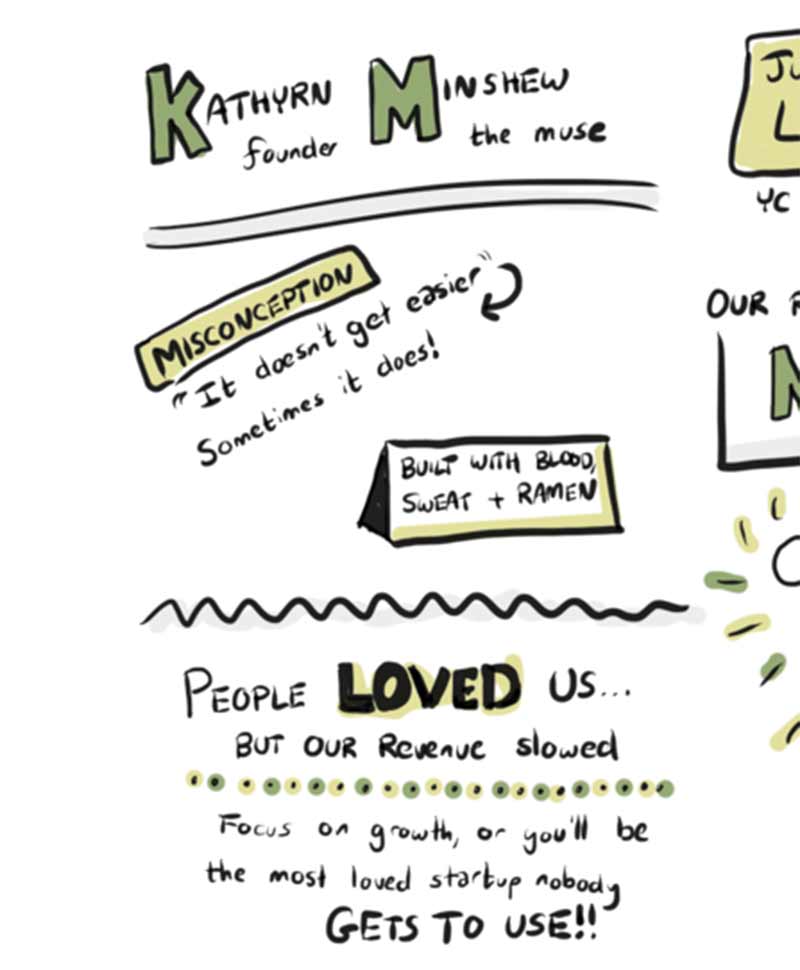 KATHYRN MINSHEW
founder the muse
MISCONCEPTION
"It doesn't get easier"
Sometimes it does!
BUILT WITH BLOOD,
SWEAT + RAMEN
PEOPLE LOVED US...
BUT OUR Revenue slowed
Focus on growth, or you'll be
the most loved startup nobody
GETS TO USE!!
YC
OUR